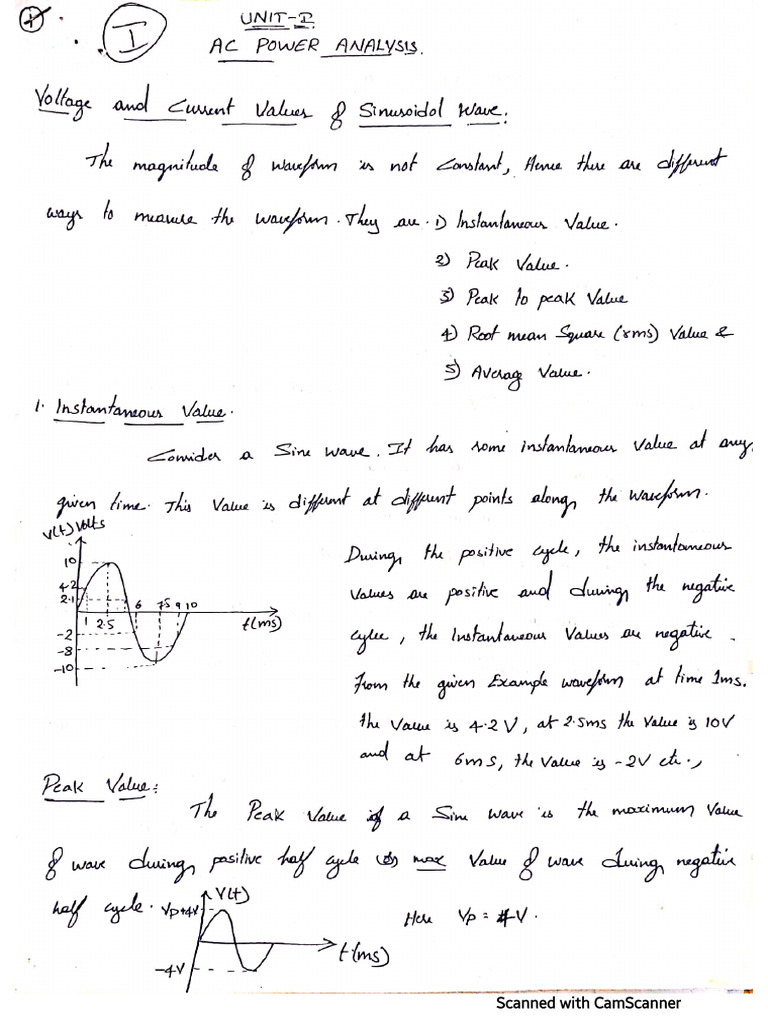 I
UNIT-I
AC POWER ANALYSIS.
Voltage and Current Values of Sinusoidol Wave:
The magnitude of waveform is not Constant, Hence there are different
ways to measure the waveform. They are. 1) Instantaneous Value.
2) Peak Value.
3) Peak to peak Value
4) Root mean Square (rms) Value &
5) Average Value.
1. Instantaneous Value.
Consider a Sine wave. It has some instantaneous value at any
given time. This Value is different at different points along the waveform.
V(t) Volts
10
4.2
2.1
-2
-8
-10
1 2.5 6 7.5 9 10
t(ms)
During the positive cycle, the instantaneous
values are positive and during the negative
cylce, the Instantaneous Values are negative.
From the given Example waveform at time 1ms.
the value is 4.2V, at 2.5ms the value is 10V
and at 6ms, the value is -2V etc.,
Peak Value:
The Peak value of a Sine wave is the maximum value
of wave during positive half cycle (or) max value of wave during negative
half cycle.
V(t)
Vp+4V
-4V
t(ms)
Here Vp = 4V.
Scanned with CamScanner